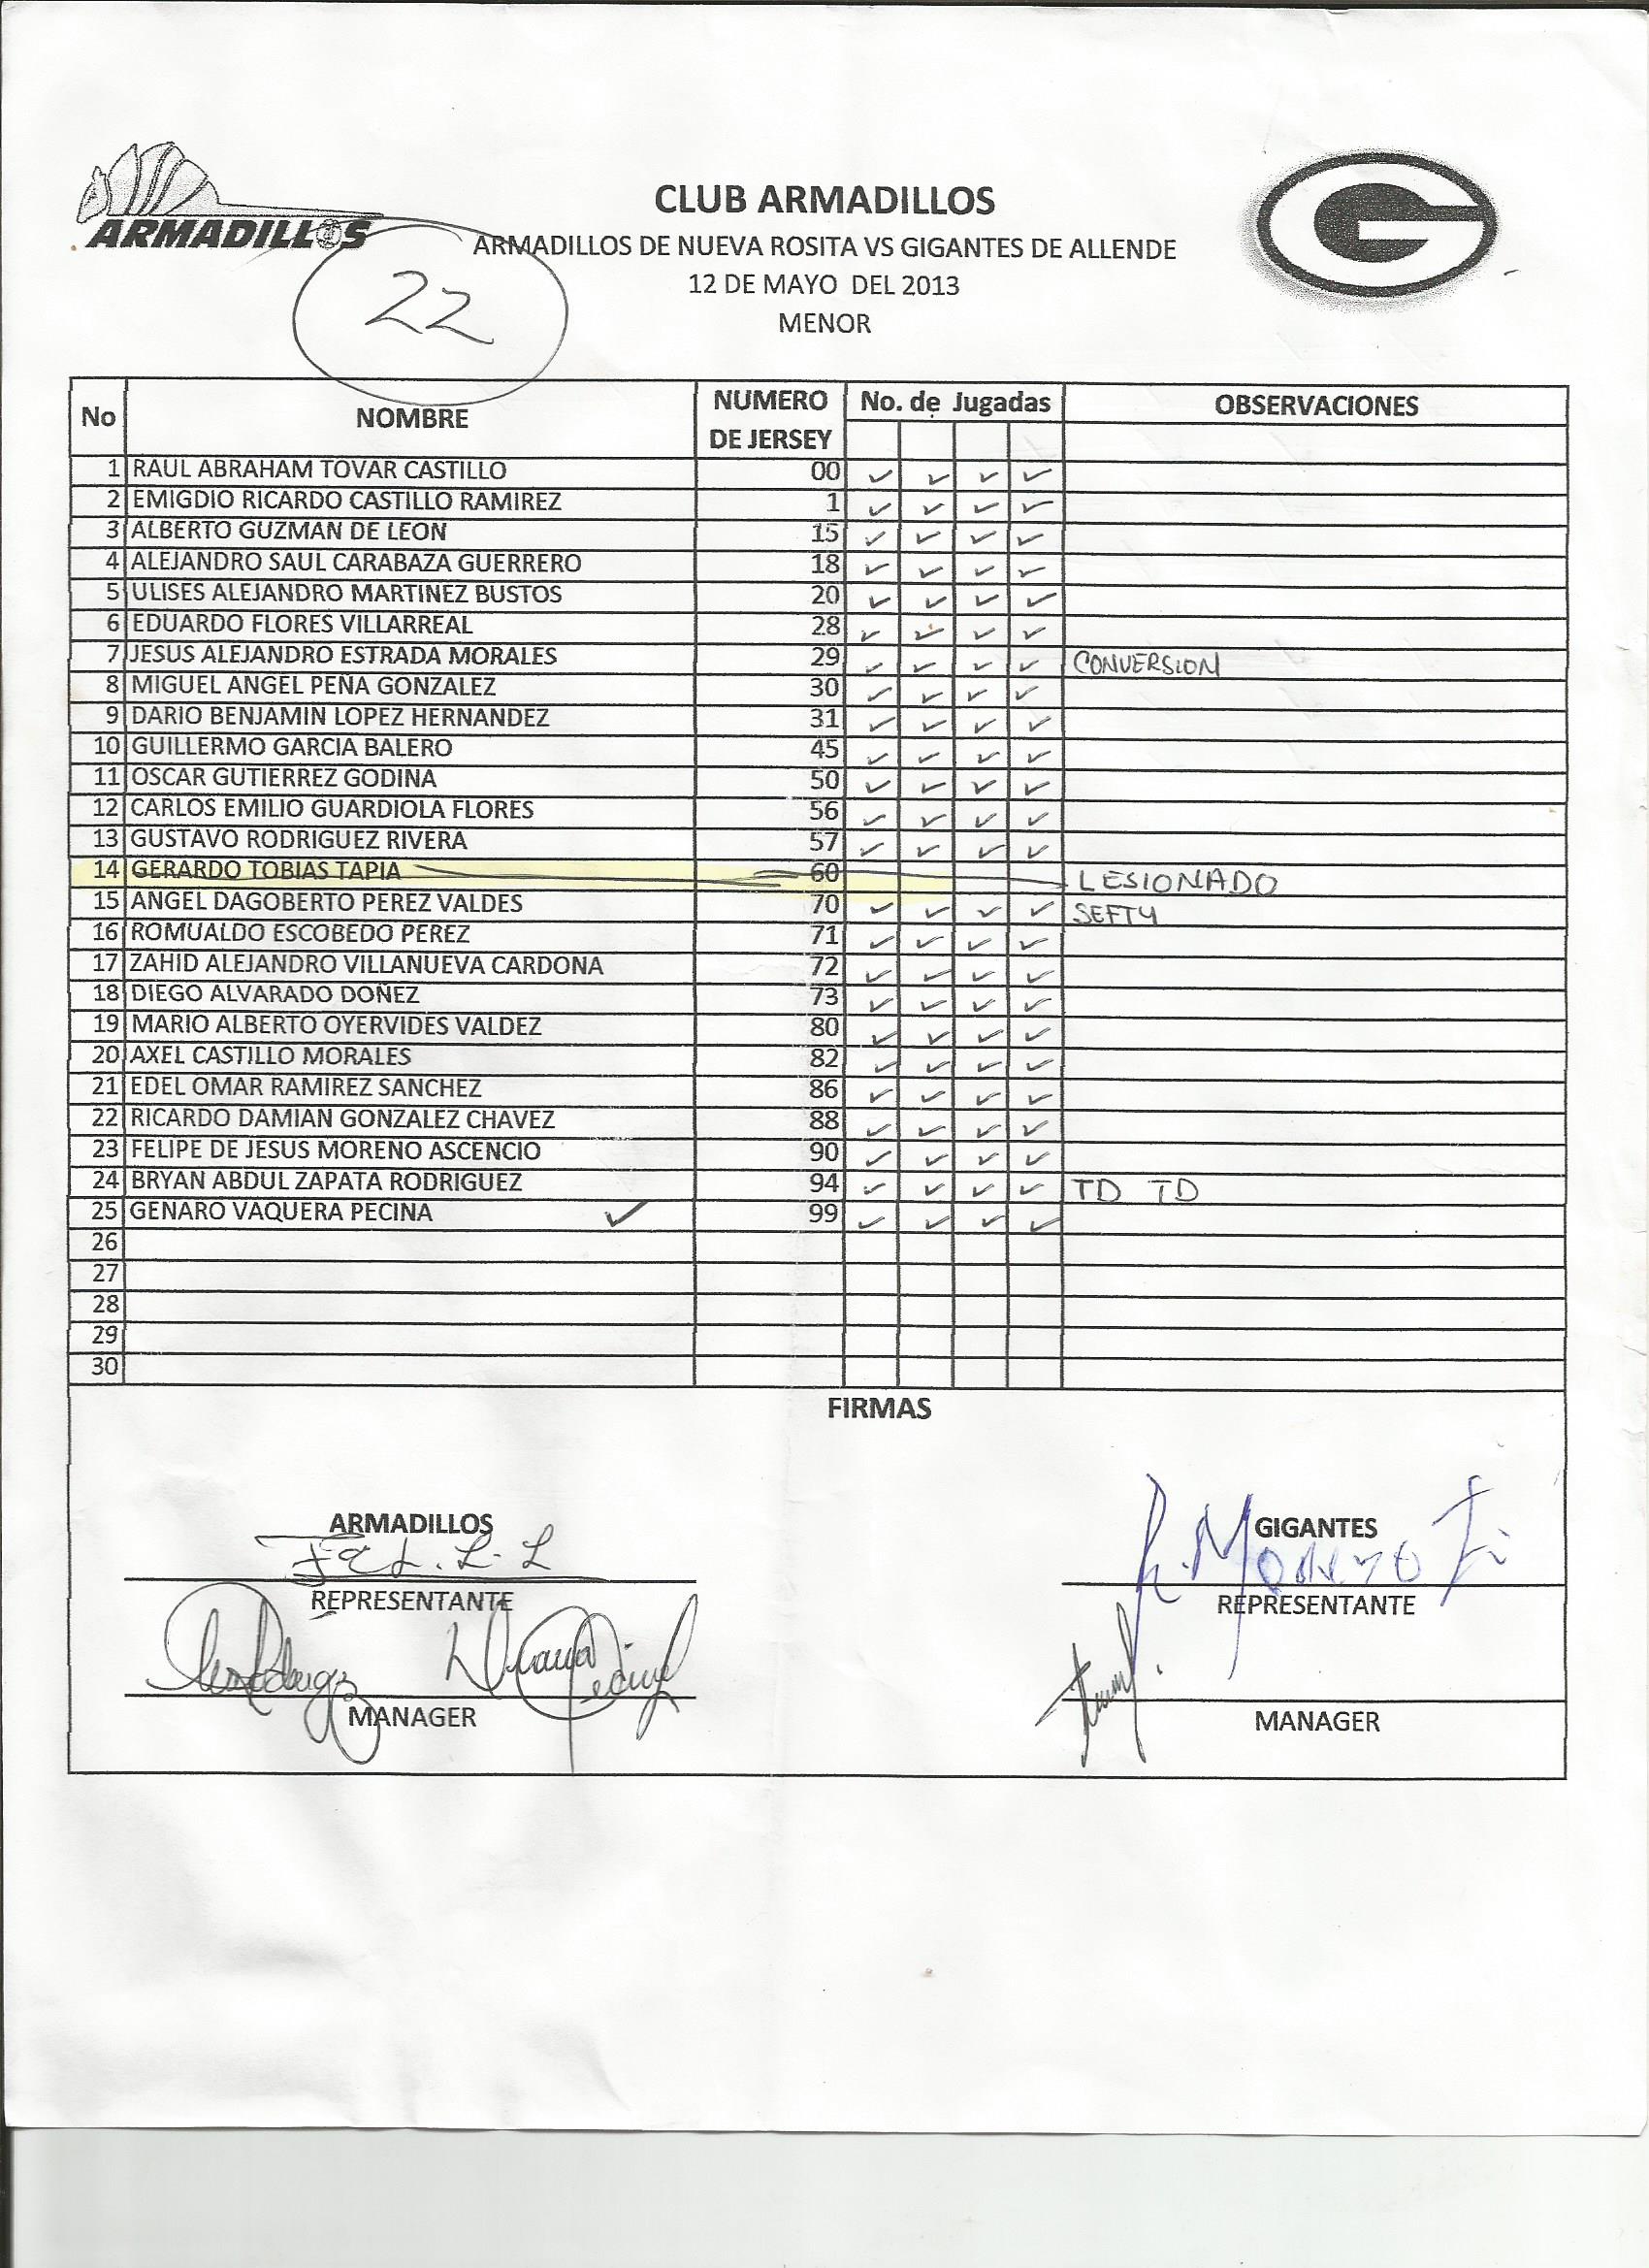 ARMADILLOS
CLUB ARMADILLOS
G
ARMADILLOS DE NUEVA ROSITA VS GIGANTES DE ALLENDE
22
12 DE MAYO DEL 2013
MENOR
No NOMBRE NUMERO DE JERSEY No. de Jugadas OBSERVACIONES
1 RAUL ABRAHAM TOVAR CASTILLO 00 ✓ ✓ ✓ ✓
2 EMIGDIO RICARDO CASTILLO RAMIREZ 1 ✓ ✓ ✓ ✓
3 ALBERTO GUZMAN DE LEON 15 ✓ ✓ ✓ ✓
4 ALEJANDRO SAUL CARABAZA GUERRERO 18 ✓ ✓ ✓ ✓
5 ULISES ALEJANDRO MARTINEZ BUSTOS 20 ✓ ✓ ✓ ✓
6 EDUARDO FLORES VILLARREAL 28 ✓ ✓ ✓ ✓
7 JESUS ALEJANDRO ESTRADA MORALES 29 ✓ ✓ ✓ ✓ CONVERSION
8 MIGUEL ANGEL PEÑA GONZALEZ 30 ✓ ✓ ✓ ✓
9 DARIO BENJAMIN LOPEZ HERNANDEZ 31 ✓ ✓ ✓ ✓
10 GUILLERMO GARCIA BALERO 45 ✓ ✓ ✓ ✓
11 OSCAR GUTIERREZ GODINA 50 ✓ ✓ ✓ ✓
12 CARLOS EMILIO GUARDIOLA FLORES 56 ✓ ✓ ✓ ✓
13 GUSTAVO RODRIGUEZ RIVERA 57 ✓ ✓ ✓ ✓
14 GERARDO TOBIAS TAPIA 60 LESIONADO
15 ANGEL DAGOBERTO PEREZ VALDES 70 ✓ ✓ ✓ ✓ SEFTY
16 ROMUALDO ESCOBEDO PEREZ 71 ✓ ✓ ✓ ✓
17 ZAHID ALEJANDRO VILLANUEVA CARDONA 72 ✓ ✓ ✓ ✓
18 DIEGO ALVARADO DOÑEZ 73 ✓ ✓ ✓ ✓
19 MARIO ALBERTO OYERVIDES VALDEZ 80 ✓ ✓ ✓ ✓
20 AXEL CASTILLO MORALES 82 ✓ ✓ ✓ ✓
21 EDEL OMAR RAMIREZ SANCHEZ 86 ✓ ✓ ✓ ✓
22 RICARDO DAMIAN GONZALEZ CHAVEZ 88 ✓ ✓ ✓ ✓
23 FELIPE DE JESUS MORENO ASCENCIO 90 ✓ ✓ ✓ ✓
24 BRYAN ABDUL ZAPATA RODRIGUEZ 94 ✓ ✓ ✓ ✓ TD TD
25 GENARO VAQUERA PECINA ✓ 99 ✓ ✓ ✓ ✓
26
27
28
29
30
FIRMAS
ARMADILLOS GIGANTES
REPRESENTANTE REPRESENTANTE
MANAGER MANAGER